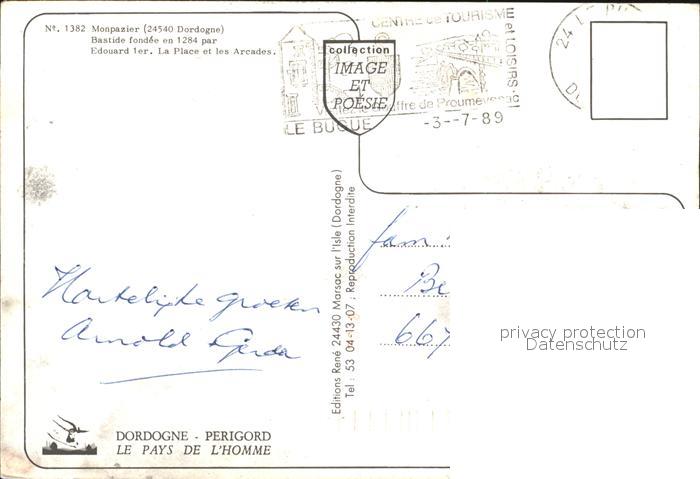 Nº. 1382 Monpazier (24540 Dordogne)
Bastide fondée en 1284 par
Edouard 1er. La Place et les Arcades.
collection
IMAGE
ET
POÉSIE
CENTRE de TOURISME
et LOISIRS
Gouffre de Proumeyssac
LE BUGUE
-3--7-89
24
Editions René 24430 Marsac sur l'Isle (Dordogne)
Tel : 53 04-13-07 : Reproduction Interdite
Hartelijke groeten
Arnold Gerda
fam :
Be
667
privacy protection
Datenschutz
DORDOGNE - PERIGORD
LE PAYS DE L'HOMME